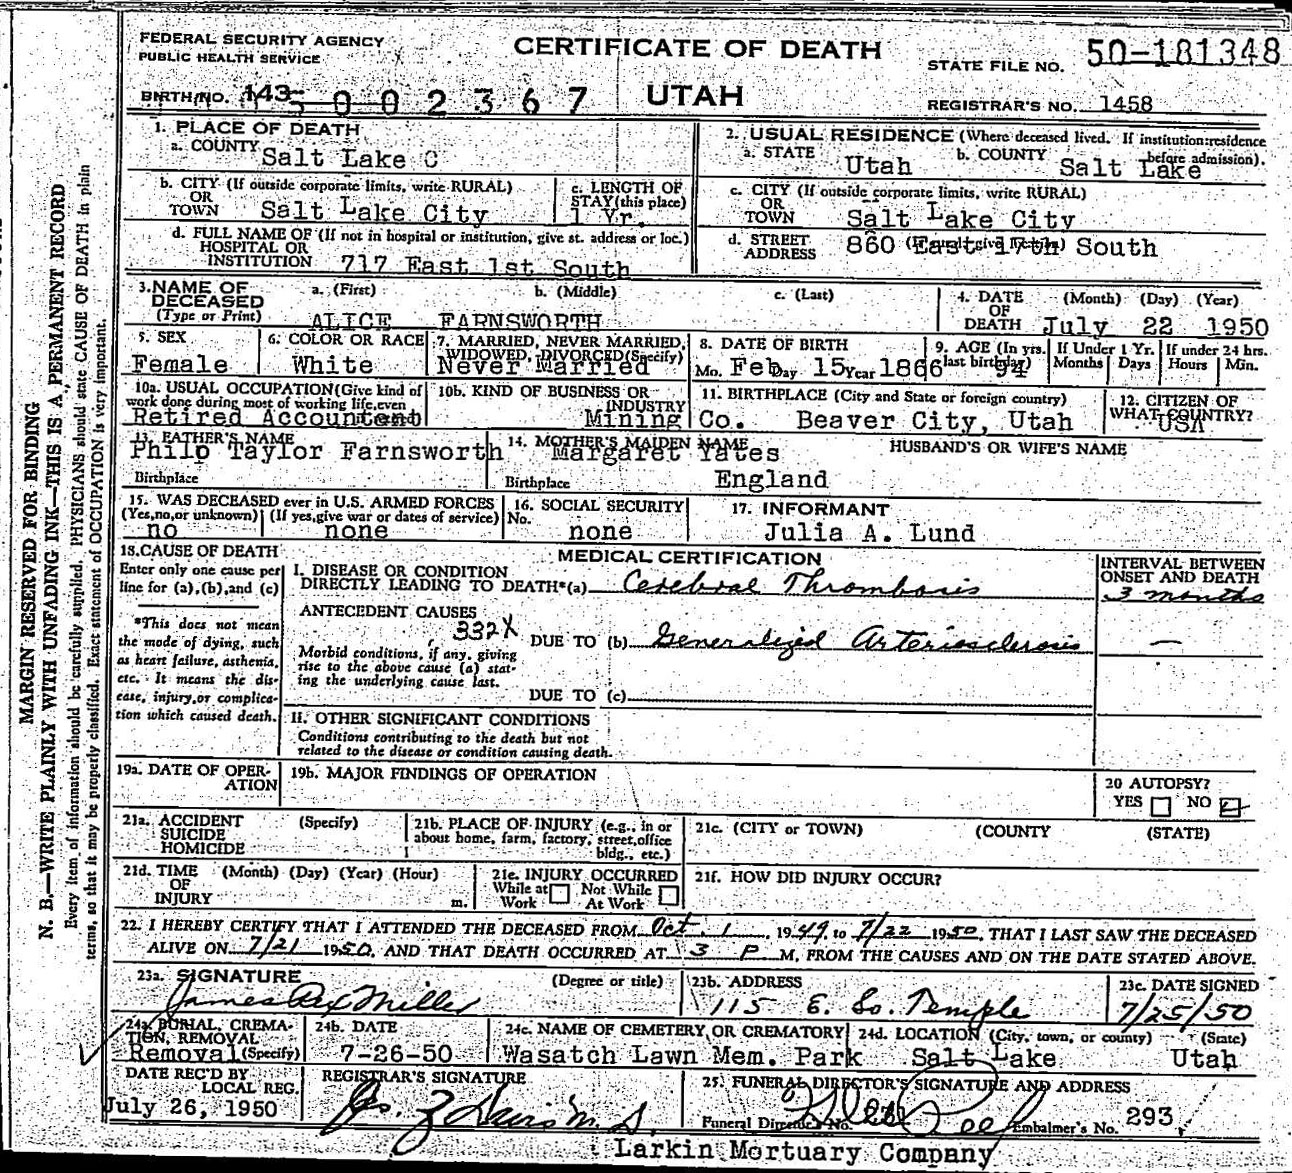 FEDERAL SECURITY AGENCY
PUBLIC HEALTH SERVICE
CERTIFICATE OF DEATH
STATE FILE NO. 50-181348
BIRTH NO. 143
5 0 0 2 3 6 7
UTAH
REGISTRAR'S NO. 1458
1. PLACE OF DEATH
a. COUNTY Salt Lake C
2. USUAL RESIDENCE (Where deceased lived. If institution:residence before admission).
a. STATE Utah b. COUNTY Salt Lake
b. CITY (If outside corporate limits, write RURAL)
OR
TOWN Salt Lake City
c. LENGTH OF
STAY (this place)
1 Yr.
c. CITY (If outside corporate limits, write RURAL)
OR
TOWN Salt Lake City
d. FULL NAME OF (If not in hospital or institution, give st. address or loc.)
HOSPITAL OR
INSTITUTION 717 East 1st South
d. STREET
ADDRESS 860 East 17th South
3. NAME OF
DECEASED
(Type or Print)
a. (First) b. (Middle) c. (Last)
ALICE FARNSWORTH
4. DATE (Month) (Day) (Year)
OF
DEATH July 22 1950
5. SEX
Female
6. COLOR OR RACE
White
7. MARRIED, NEVER MARRIED,
WIDOWED, DIVORCED (Specify)
Never Married
8. DATE OF BIRTH
Mo. Feb Day 15 Year 1866
9. AGE (In yrs.
last birthday)
If Under 1 Yr.
Months Days
If under 24 hrs.
Hours Min.
10a. USUAL OCCUPATION (Give kind of
work done during most of working life, even
Retired Accountant
10b. KIND OF BUSINESS OR
INDUSTRY
Mining Co.
11. BIRTHPLACE (City and State or foreign country)
Beaver City, Utah
12. CITIZEN OF
WHAT COUNTRY?
USA
13. FATHER'S NAME
Philo Taylor Farnsworth
Birthplace
14. MOTHER'S MAIDEN NAME
Margaret Yates
Birthplace England
HUSBAND'S OR WIFE'S NAME
15. WAS DECEASED ever in U.S. ARMED FORCES
(Yes, no, or unknown) (If yes, give war or dates of service)
no none
16. SOCIAL SECURITY
No.
none
17. INFORMANT
Julia A. Lund
18. CAUSE OF DEATH
Enter only one cause per
line for (a), (b), and (c)
*This does not mean
the mode of dying, such
as heart failure, asthenia,
etc. It means the dis-
ease, injury, or complica-
tion which caused death.
MEDICAL CERTIFICATION
I. DISEASE OR CONDITION
DIRECTLY LEADING TO DEATH*(a) Cerebral Thrombosis
ANTECEDENT CAUSES
332X
DUE TO (b) Generalized Arteriosclerosis
Morbid conditions, if any, giving
rise to the above cause (a) stat-
ing the underlying cause last.
DUE TO (c)
II. OTHER SIGNIFICANT CONDITIONS
Conditions contributing to the death but not
related to the disease or condition causing death.
INTERVAL BETWEEN
ONSET AND DEATH
3 months
—
19a. DATE OF OPER-
ATION
19b. MAJOR FINDINGS OF OPERATION
20 AUTOPSY?
YES NO
21a. ACCIDENT
SUICIDE
HOMICIDE
(Specify)
21b. PLACE OF INJURY (e.g., in or
about home, farm, factory, street, office
bldg., etc.)
21c. (CITY or TOWN) (COUNTY (STATE)
21d. TIME (Month) (Day) (Year) (Hour)
OF
INJURY m.
21e. INJURY OCCURRED
While at Not While
Work At Work
21f. HOW DID INJURY OCCUR?
22. I HEREBY CERTIFY THAT I ATTENDED THE DECEASED FROM Oct. 1, 1949, to 7/22 1950, THAT I LAST SAW THE DECEASED
ALIVE ON 7/21 1950, AND THAT DEATH OCCURRED AT 3 P M, FROM THE CAUSES AND ON THE DATE STATED ABOVE.
23a. SIGNATURE (Degree or title)
James Rex Miller
23b. ADDRESS
115 E. So. Temple
23c. DATE SIGNED
7/25/50
24a. BURIAL, CREMA-
TION, REMOVAL
Removal (Specify)
24b. DATE
7-26-50
24c. NAME OF CEMETERY OR CREMATORY
Wasatch Lawn Mem. Park
24d. LOCATION (City, town, or county) (State)
Salt Lake Utah
DATE REC'D BY
LOCAL REG.
July 26, 1950
REGISTRAR'S SIGNATURE
25. FUNERAL DIRECTOR'S SIGNATURE AND ADDRESS
Funeral Director's No.
Embalmer's No. 293
Larkin Mortuary Company
MARGIN RESERVED FOR BINDING
N. B.—WRITE PLAINLY WITH UNFADING INK—THIS IS A PERMANENT RECORD
Every item of information should be carefully supplied. PHYSICIANS should state CAUSE OF DEATH in plain
terms, so that it may be properly classified. Exact statement of OCCUPATION is very important.